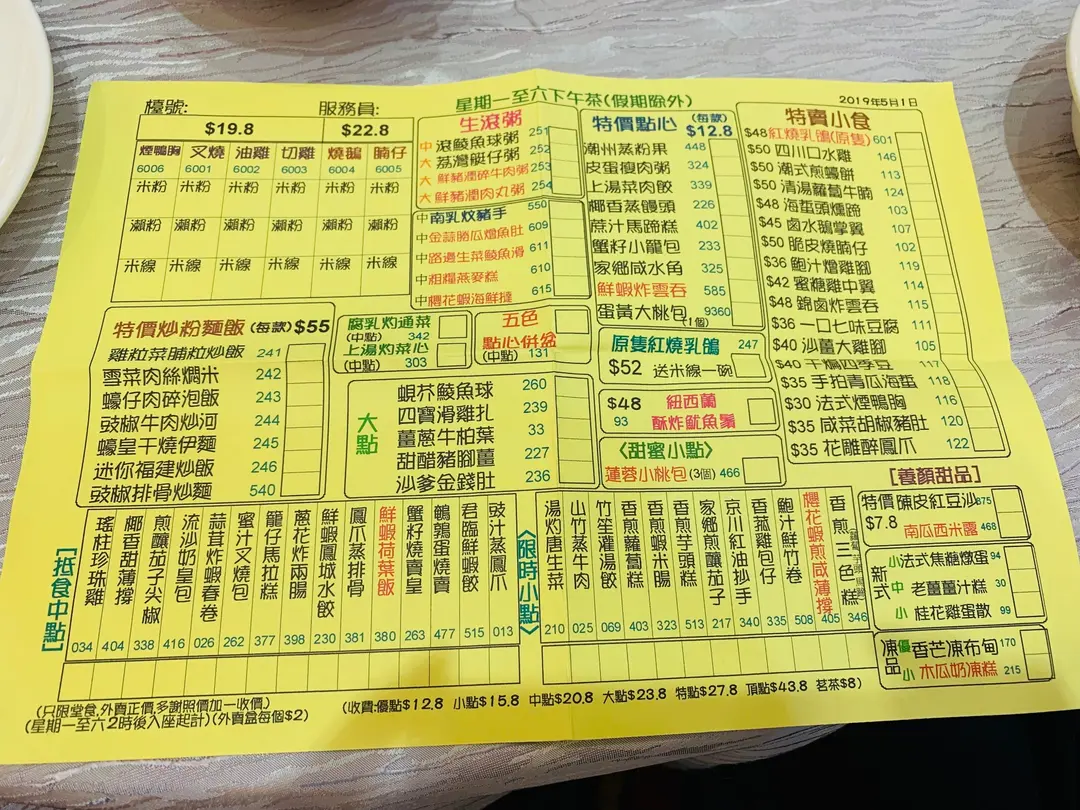 檯號:
服務員:
星期一至六下午茶(假期除外)
2019年5月1日
$19.8 $22.8
煙鴨胸 叉燒 油雞 切雞 燒鵝 腩仔
6006 6001 6002 6003 6004 6005
米粉 米粉 米粉 米粉 米粉 米粉
瀨粉 瀨粉 瀨粉 瀨粉 瀨粉 瀨粉
米線 米線 米線 米線 米線 米線
生滾粥
中 滾鯪魚球粥 251
大 荔灣艇仔粥 252
大 鮮豬潤碎牛肉粥 253
大 鮮豬潤肉丸粥 254
中 南乳炆豬手 550
中 金蒜勝瓜燴魚肚 609
中 路邊生菜鯪魚滑 611
中 粗糧燕麥糕 610
中 櫻花蝦海鮮撻 615
特價點心 (每款) $12.8
潮州蒸粉果 448
皮蛋瘦肉粥 324
上湯菜肉餃 339
椰香蒸饅頭 226
蔗汁馬蹄糕 402
蟹籽小龍包 233
家鄉咸水角 325
鮮蝦炸雲吞 585
蛋黃大桃包 9360
(1個)
特賣小食
$48 紅燒乳鴿(原隻) 601
$50 四川口水雞 146
$50 潮式煎蠔餅 113
$50 清湯蘿蔔牛腩 124
$48 海蜇頭燻蹄 103
$45 鹵水鵝掌翼 107
$50 脆皮燒腩仔 102
$36 鮑汁燴雞腳 119
$42 蜜糖雞中翼 114
$48 錦鹵炸雲吞 115
$36 一口七味豆腐 111
$40 沙薑大雞腳 105
$40 干煸四季豆 117
$35 手拍青瓜海蜇 118
$30 法式煙鴨胸 116
$35 咸菜胡椒豬肚 120
$35 花雕醉鳳爪 122
特價炒粉麵飯 (每款) $55
雞粒菜脯粒炒飯 241
雪菜肉絲燜米 242
蠔仔肉碎泡飯 243
豉椒牛肉炒河 244
蠔皇干燒伊麵 245
迷你福建炒飯 246
豉椒排骨炒麵 540
腐乳灼通菜
(中點) 342
上湯灼菜心
(中點) 303
五色
點心併盆
(中點) 131
大點
蜆芥鯪魚球 260
四寶滑雞扎 239
薑蔥牛柏葉 33
甜醋豬腳薑 227
沙爹金錢肚 236
原隻紅燒乳鴿 247
$52 送米線一碗
$48 紐西蘭
93 酥炸魷魚鬚
〈甜蜜小點〉
蓮蓉小桃包(3個) 466
[抵食中點]
瑤柱珍珠雞 034
椰香甜薄撐 404
煎釀茄子尖椒 338
流沙奶皇包 416
蒜茸炸蝦春卷 026
蜜汁叉燒包 262
龍仔馬拉糕 377
蔥花炸兩腸 398
鮮蝦鳳城水餃 230
鳳爪蒸排骨 381
鮮蝦荷葉飯 380
蟹籽燒賣皇 263
鵪鶉蛋燒賣 477
君臨鮮蝦餃 515
豉汁蒸鳳爪 013
〈限時小點〉
湯灼唐生菜 210
山竹蒸牛肉 025
竹笙灌湯餃 069
香煎蘿蔔糕 403
香煎蝦米腸 323
香煎芋頭糕 513
家鄉煎釀茄子 217
京川紅油抄手 340
香菰雞包仔 335
鮑汁鮮竹卷 508
櫻花蝦煎咸薄撐 405
香煎三色糕 346
[養顏甜品]
特價 陳皮紅豆沙 875
$7.8 南瓜西米露 468
新式
小 法式焦糖燉蛋 94
中 老薑薑汁糕 30
小 桂花雞蛋散 99
凍品
優 香芒凍布甸 170
小 木瓜奶凍糕 215
(只限堂食,外賣正價,多謝照價加一收價)
(收費:優點$12.8 小點$15.8 中點$20.8 大點$23.8 特點$27.8 頂點$43.8 茗茶$8)
(星期一至六2時後入座起計)(外賣盒每個$2)